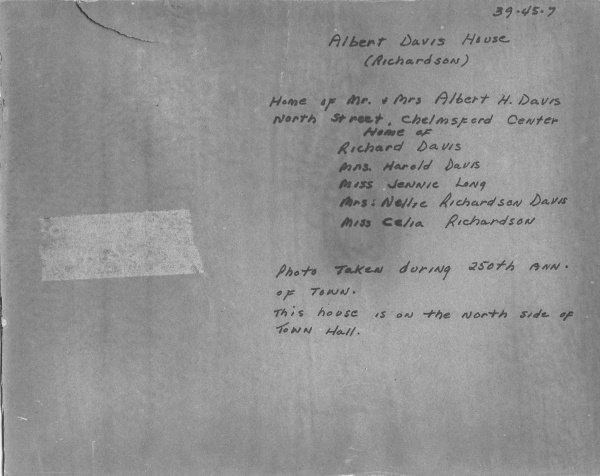 39-45-7
Albert Davis House
(Richardson)
Home of Mr. & Mrs Albert H. Davis
North Street, Chelmsford Center
Home of
Richard Davis
Mrs. Harold Davis
Miss Jennie Long
Mrs. Nellie Richardson Davis
Miss Celia Richardson
Photo Taken during 250th Ann.
of Town.
This house is on the north side of
Town Hall.